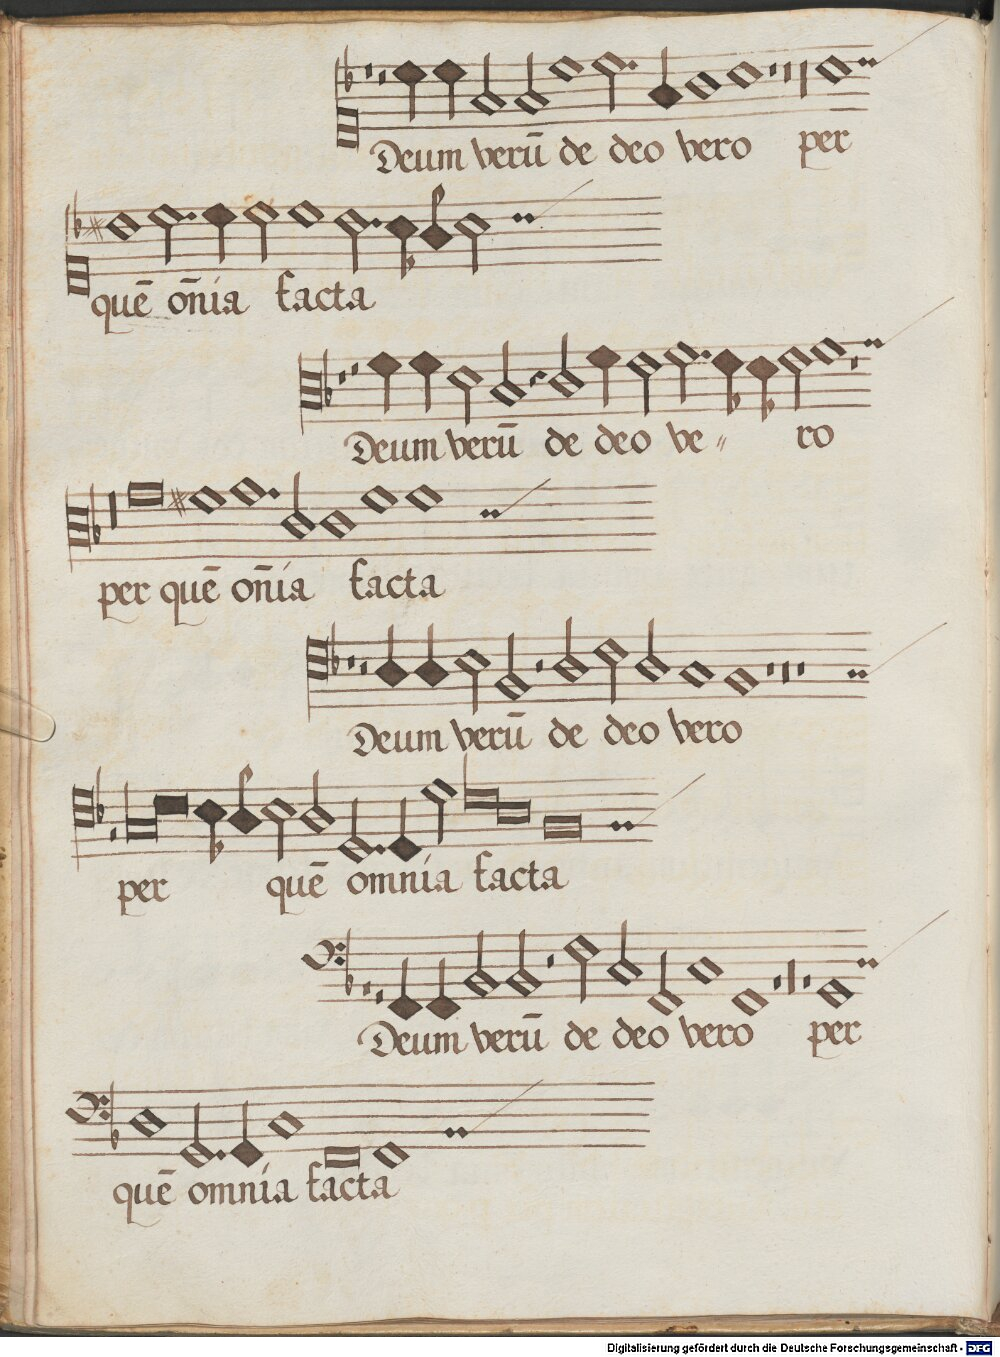 Deum verū de deo vero per
quē oñia facta
Deum verū de deo ve〃 ro
per quē oñia facta
Deum verū de deo vero
per quē omnia facta
Deum verū de deo vero per
quē omnia facta
Digitalisierung gefördert durch die Deutsche Forschungsgemeinschaft - DFG